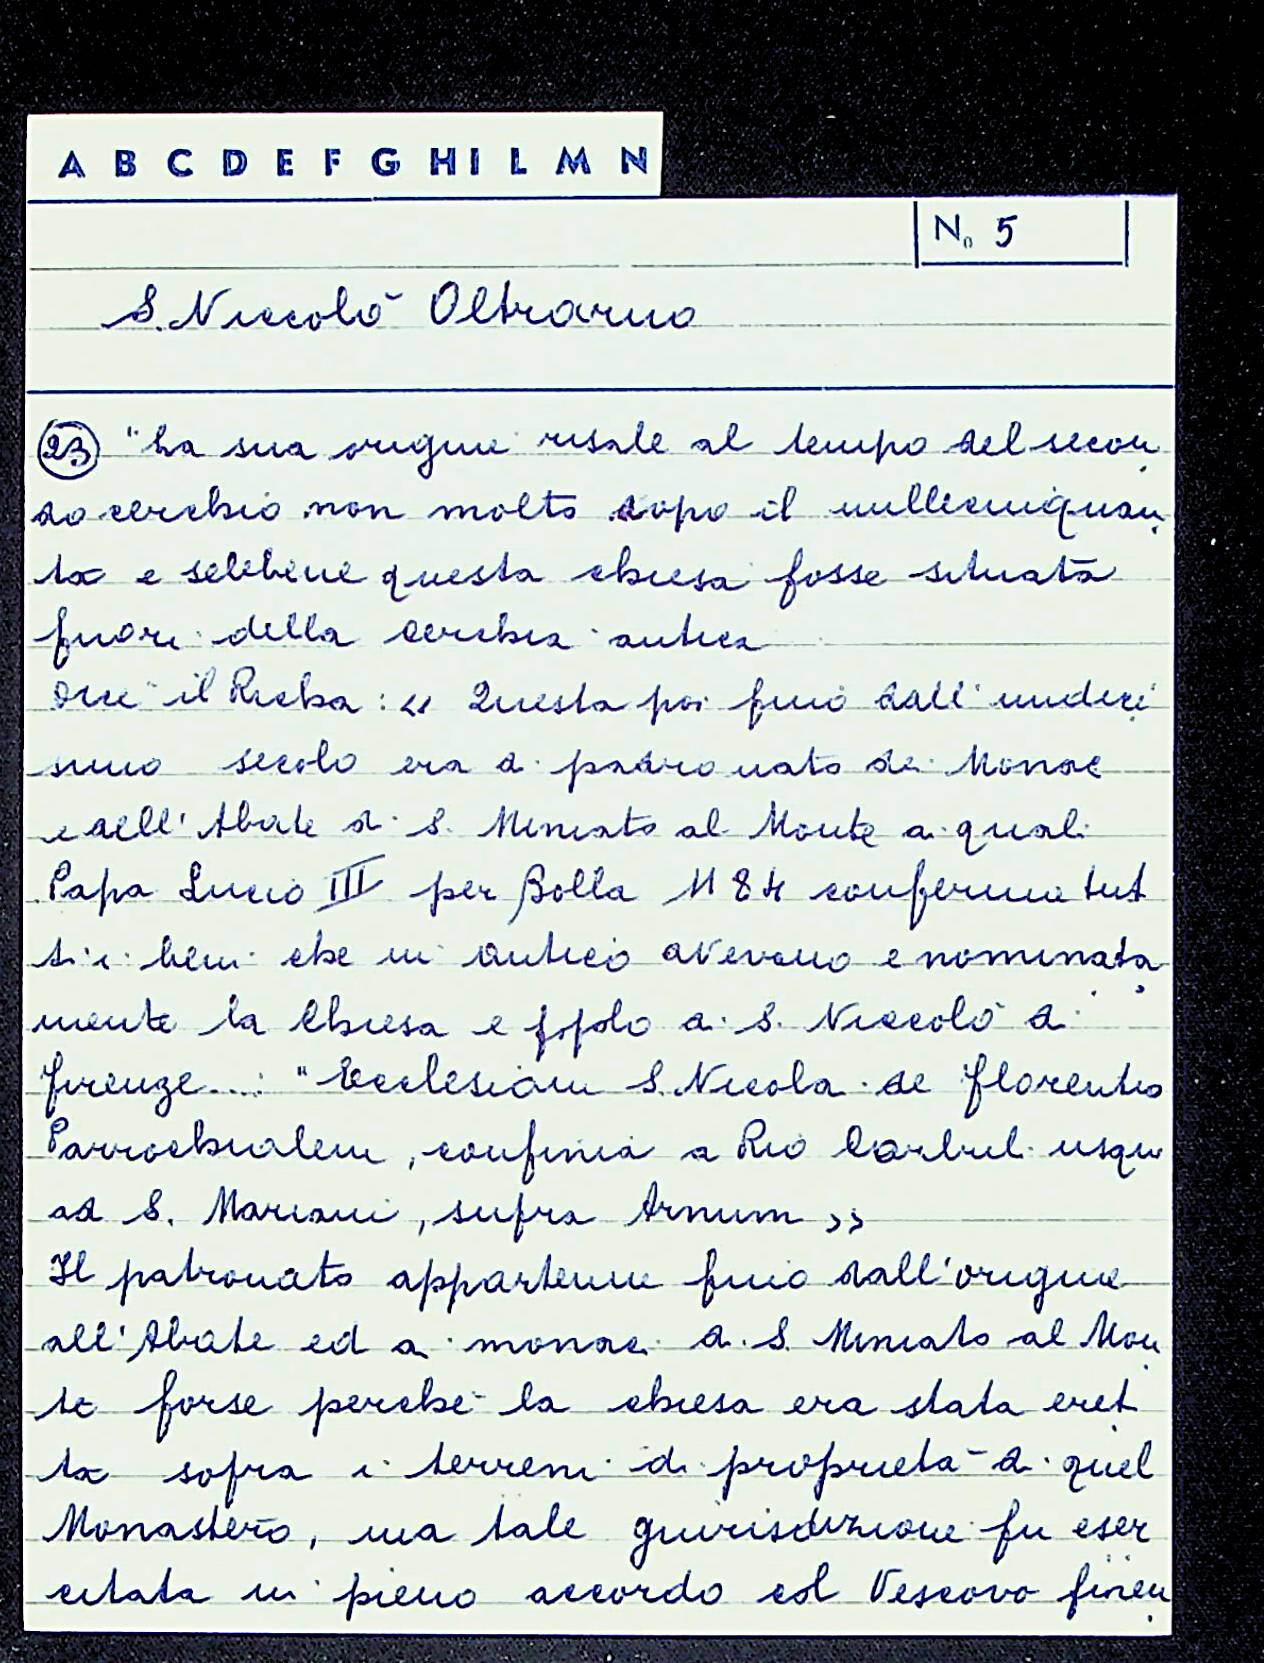 A B C D E F G H I L M N
No 5
S. Niccolò Oltrarno
23 "La sua origine risale al tempo del secon
do cerchio non molto dopo il millecinquan
ta e sebbene questa chiesa fosse situata
fuori della cerchia antica
Dice il Richa: « Questa poi fino dall'undeci
simo secolo era di padronato dei Monaci
e dell'Abate di S. Miniato al Monte ai quali
Papa Lucio III per Bolla 1184 conferma tut
ti i beni che in antico avevano e nominata
mente la Chiesa e ppolo di S. Niccolò di
Firenze...: "Ecclesiam S. Nicola de Florentia
Parrochialem, confinia a Rio Carbuli usque
ad S. Mariani, supra Arnum »
Il patronato appartenne fino dall'origine
all'Abate ed ai monaci di S. Miniato al Mon
te forse perchè la chiesa era stata eret
ta sopra i terreni di proprietà di quel
Monastero, ma tale giurisdizione fu eser
citata in pieno accordo col Vescovo finen